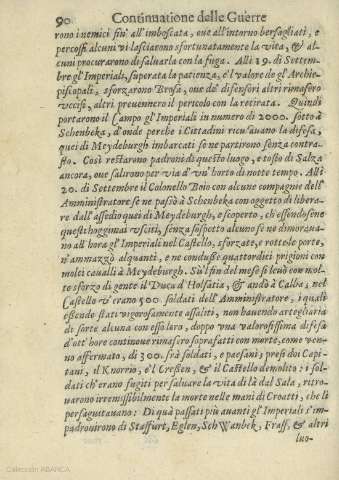 90 Continuatione delle Guerre
rono i nemici fin' all' imboscata, oue all'intorno bersagliati, e
percossi alcuni vi lasciarono sfortunatamente la vita, & al-
cuni procurarono di saluarla con la fuga. Alli 19. di Settem-
bre gl'Imperiali, superata la patienza, e'l valore de gl'Archie-
piscopali, sforzarono Brosa, oue de' difensori altri rimasero
vccisi, altri preuennero il pericolo con la retirata. Quindi
portarono il Campo gl'Imperiali in numero di 2000. sotto à
Schenbeka, d'onde perche i Cittadini ricusauano la difesa,
quei di Meydeburgh imbarcati se ne partirono senza contra-
sto. Così restarono padroni di questo luogo, e tosto di Salza
ancora, oue salirono per via d'vn' horto di notte tempo. Alli
20. di Settembre il Colonello Boio con alcune compagnie dell'
Amministratore se ne passò à Schenbeka con oggetto di libera-
re dall'assedio quei di Meydeburgh, e scoperto, ch'essendosene
questi hoggimai vsciti, senza sospetto alcuno se ne dimoraua-
no all'hora gl'Imperiali nel Castello, sforzate, e rotte le porte,
n'ammazzò alquanti, e ne condusse quattordici prigioni con
molti caualli à Meydeburgh. Sù'l fin del mese si leuò con mol-
to sforzo di gente il Duca d'Holsatia, & andò à Calba; nel
Castello v'erano 500. soldati dell'Amministratore, i quali
essendo stati vigorosamente assaliti, non hauendo artegliaria
di sorte alcuna con esso loro, doppo vna valorosissima difesa
d'ott' hore continoue rimasero soprafatti con morte, come ven-
ne affermato, di 300. frà soldati, e paesani, presi doi Capi-
tani, il Knorrio, e'l Cressen, & il Castello demolito: i sol-
dati ch'erano fugiti per saluare la vita di là dal Sala, ritro-
uarono irremissibilmente la morte nelle mani di Croatti, che li
perseguitauano: Di quà passati più auanti gl'Imperiali s'im-
padronirono di Stasfurt, Eglen, Sch Wanbek, Frass, & altri
luo-
Colección ABANCA